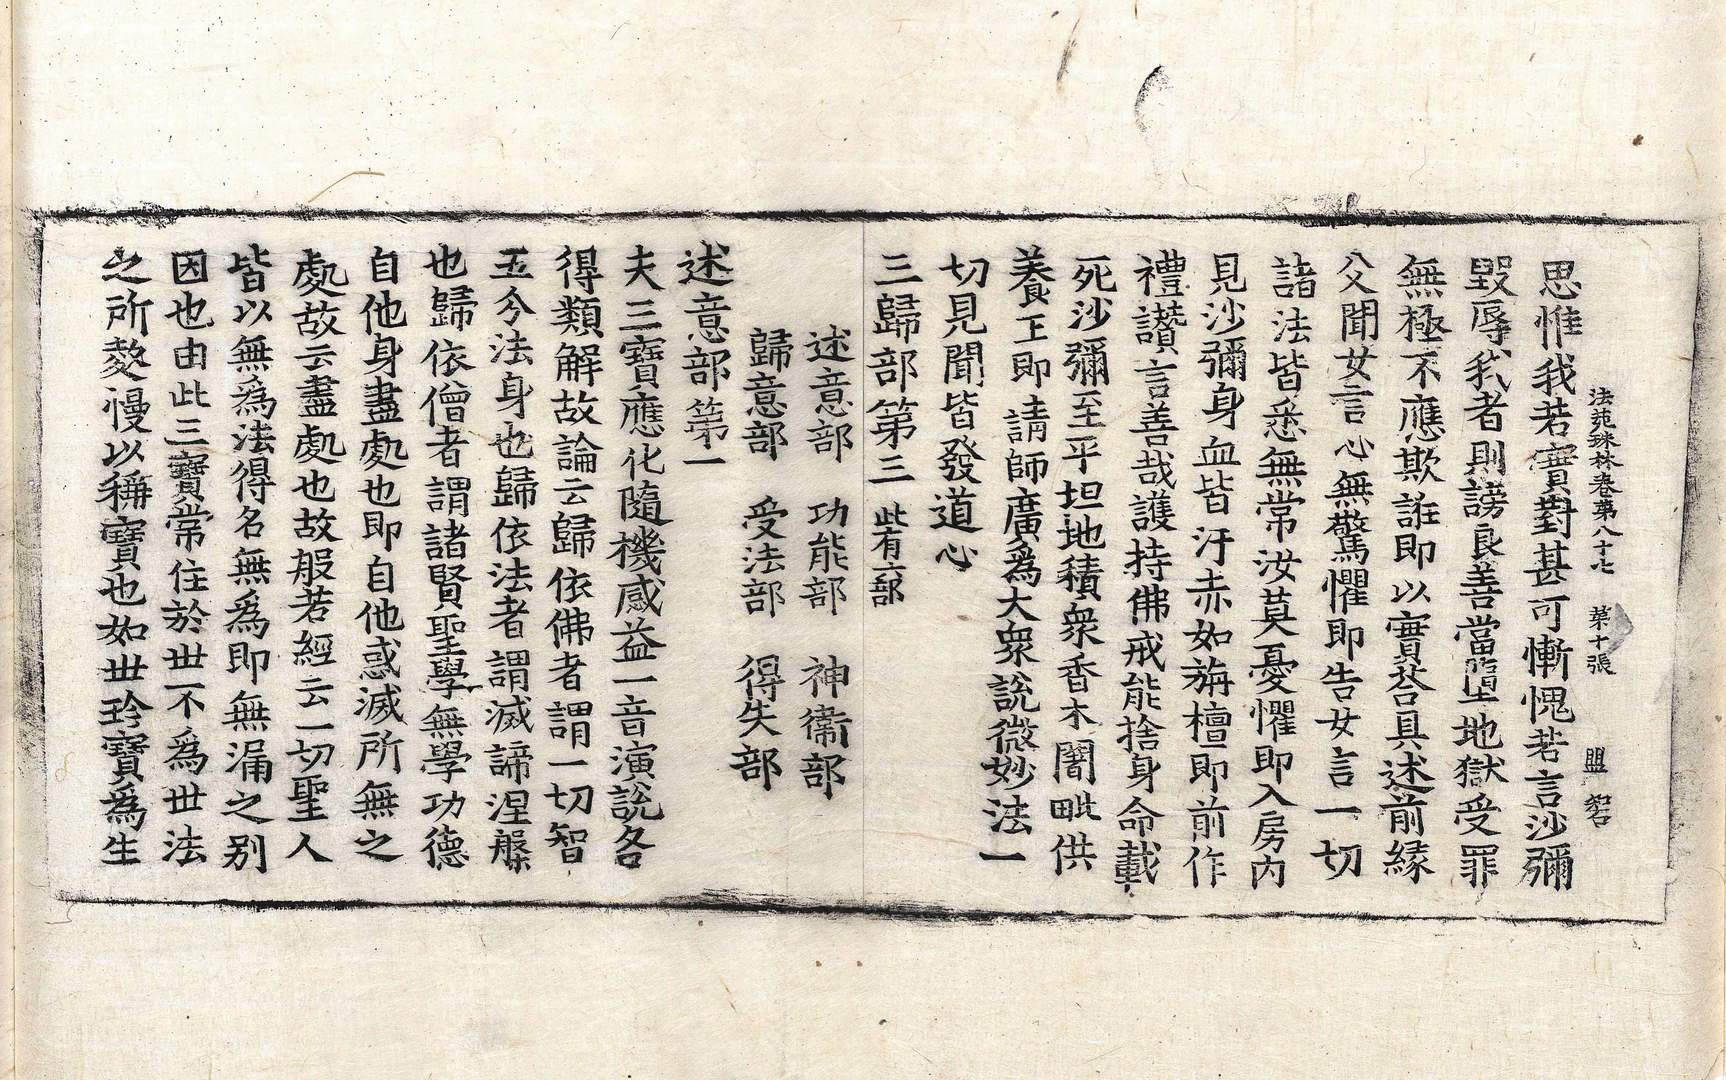 法苑珠林卷第八十七 第十張 盟
思惟我若實對甚可慚愧若言沙彌
毀辱我者則謗良善當墮地獄受罪
無極不應欺誑即以實荅具述前緣
父聞女言心無驚懼即告女言一切
諸法皆悉無常汝莫憂懼即入房内
見沙彌身血皆汙赤如旃檀即前作
禮讃言善哉護持佛戒能捨身命載
死沙彌至平坦地積衆香木闍毗供
養王即請師廣爲大衆說微妙法一
切見聞皆發道心
三歸部第三 此有六部
述意部 功能部 神衞部
歸意部 受法部 得失部
述意部第一
夫三寶應化隨機感益一音演說各
得類解故論云歸依佛者謂一切智
五分法身也歸依法者謂滅諦涅槃
也歸依僧者謂諸賢聖學無學功德
自他身盡處也即自他惑滅所無之
處故云盡處也故般若經云一切聖人
皆以無爲法得名無爲即無漏之别
因也由此三寶常住於世不爲世法
之所㚄慢以稱寶也如世珍寶爲生